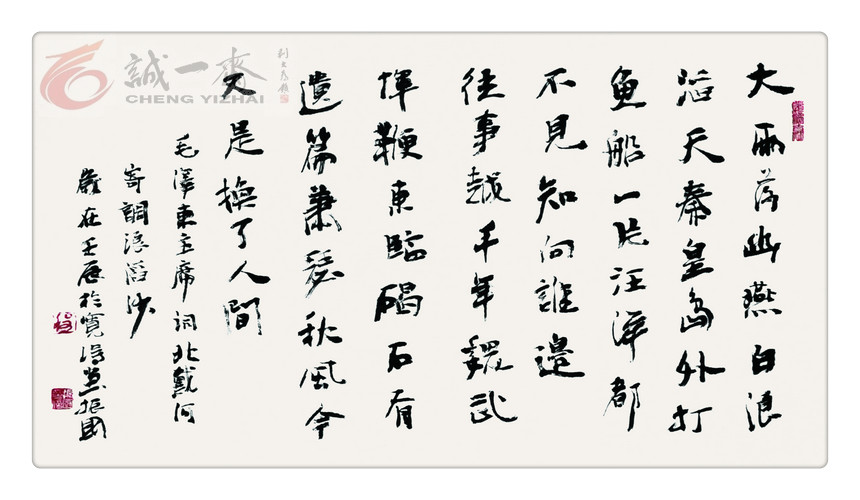 大雨落幽燕白浪
滔天秦皇島外打
魚船一片汪洋都
不見知向誰邊
往事越千年魏武
揮鞭東臨碣石有
遺篇蕭瑟秋風今
又是換了人間
毛澤東主席詞北戴河
寄調浪滔沙
歲在壬辰於寬振國
誠一齋
CHENG YIZHAI